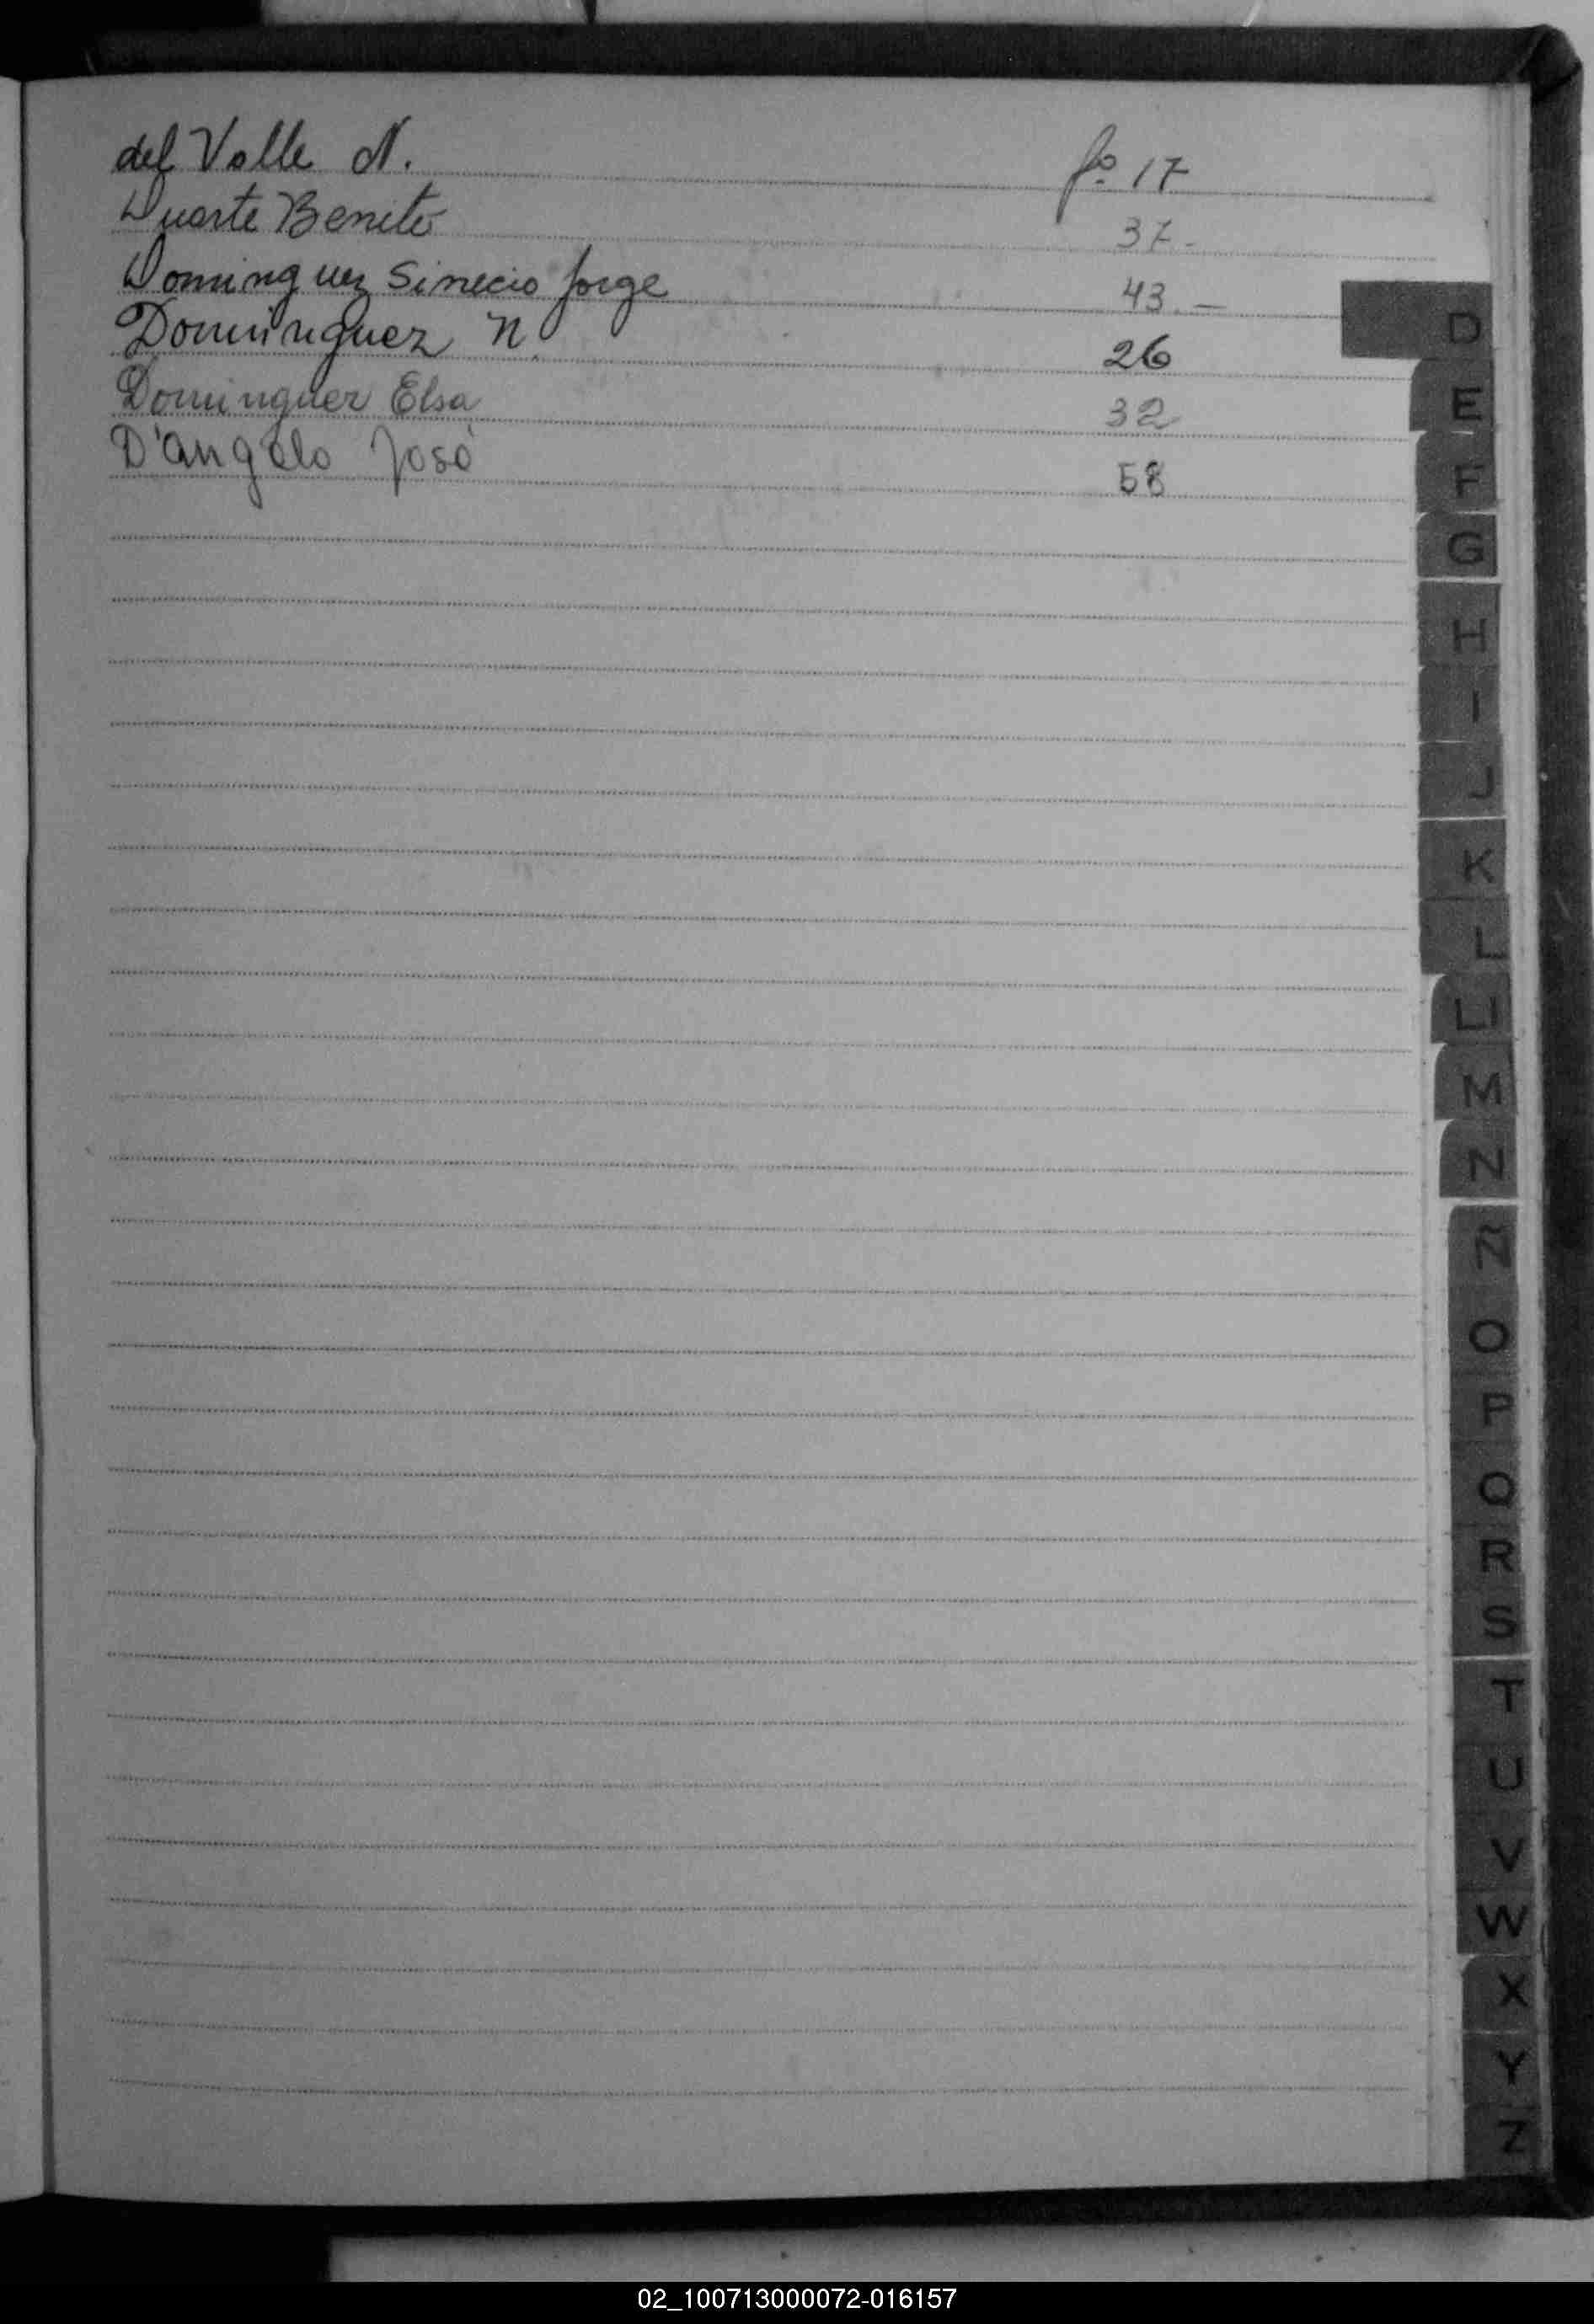 del Valle N. fº 17
Duarte Benito 37.-
Dominguez Sinecio Jorge 43.-
Dominguez N. 26
Dominguez Elsa 32
D'angelo José 58
D
E
F
G
H
I
J
K
L
Ll
M
N
Ñ
O
P
Q
R
S
T
U
V
W
X
Y
Z
02_100713000072-016157